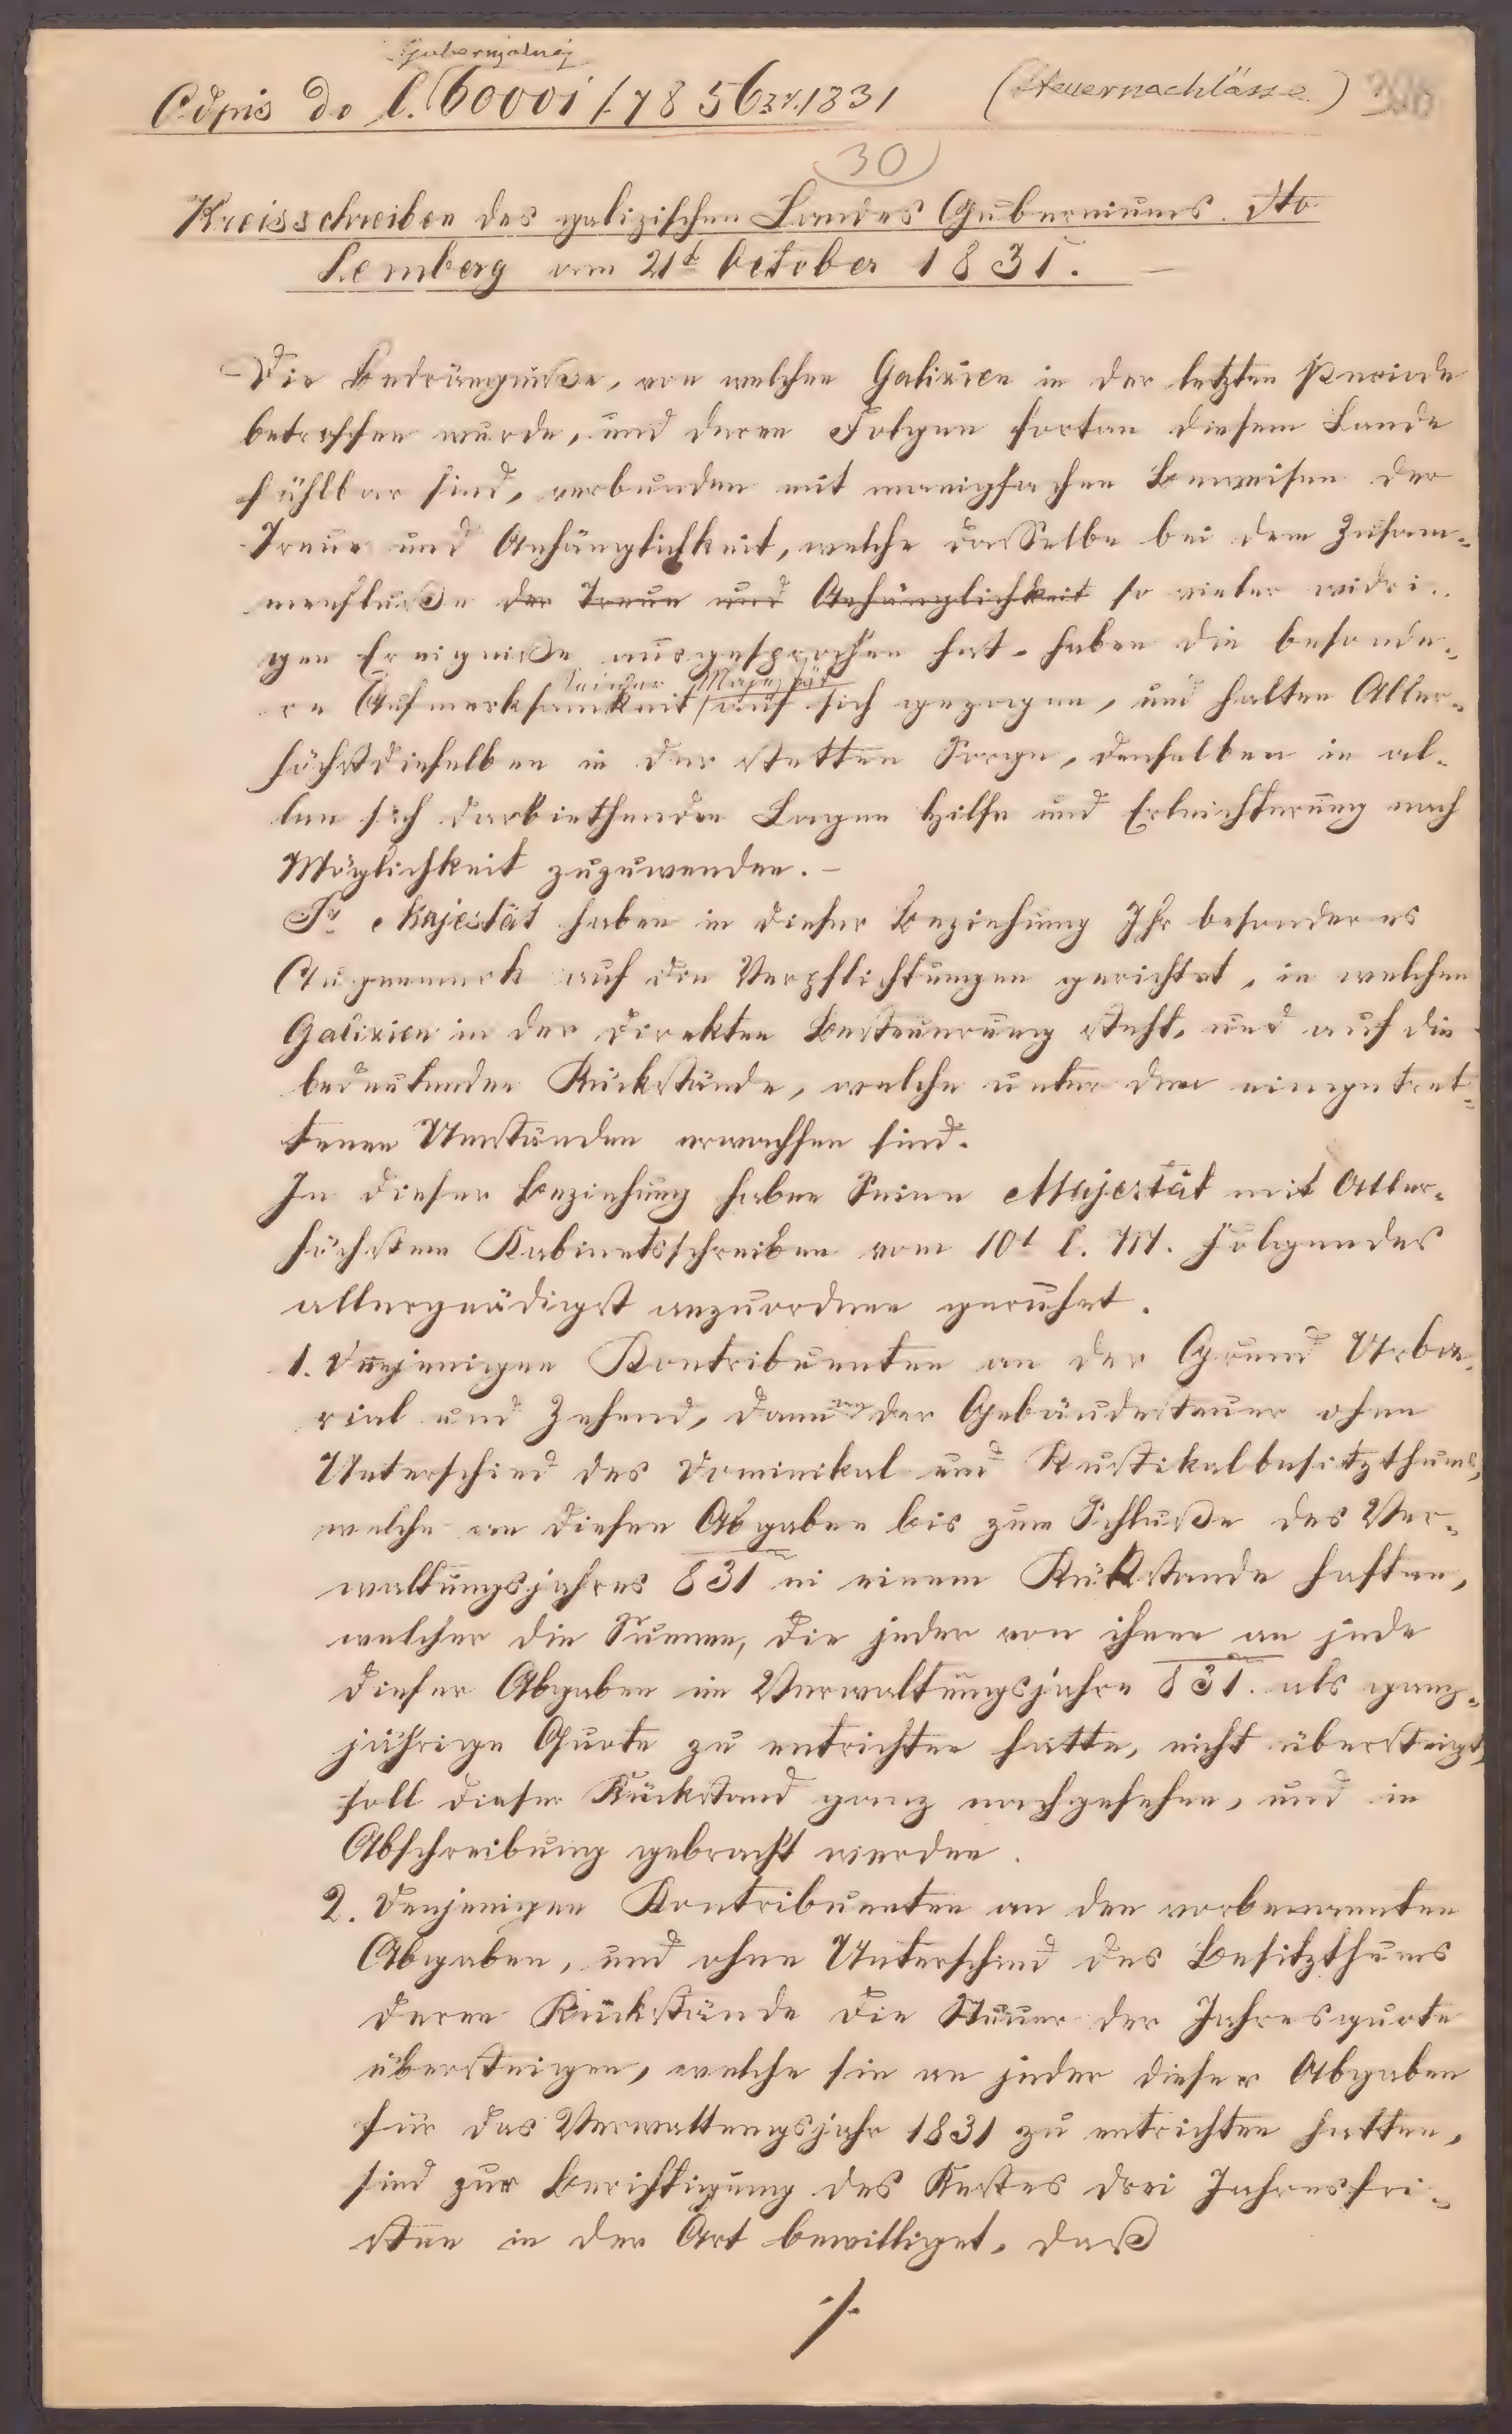 Gubernjalnej
Odpis do l. 60001/7856 zr. 1831 (Steuernachlässe)
30
Kreisschreiben des galizischen Landes Guberniums. dto
Lemberg vom 21t October 1831. —
Die Bedrängniße, von welchen Galizien in der letzten Periode
betroffen wurde, und deren Folgen fortan diesem Lande
fühlbar sind, verbunden mit manigfachen Beweisen der
Treue und Anhänglichkeit, welche dasselbe bei dem Zusam=
menfluße der Treue und Anhänglichkeit so vieler widri=
gen Ereigniße ausgesprochen hat, haben die besonde=
Seiner Majestät
re Aufmerksamkeit/auf sich gezogen, und halten Aller=
höchstdieselben in der stetten Sorge, denselben in al=
len sich darbiethenden Lagen Hilfe und Erleichterung nach
Möglichkeit zuzuwenden. —
Sr Majestät haben in dieser Beziehung Ihr besonderes
Augenmerk auf die Verpflichtungen gerichtet, in welchen
Galizien in der direkten Besteuerung steht, und auf die
bedeutenden Rückstände, welche unter den eingetret=
tenen Umständen erwachsen sind.
In dieser Beziehung haben Seine Majestät mit Aller=
höchstem Kabinetsschreiben vom 10t l. M. Folgendes
allergnädigst anzuordnen geruhet.
1. Denjenigen Kontribuenten an der Grund Urba=
rial und Zehend, dann an der Gebäudesteuer ohne
Unterschied des Dominikal und Rustikalbesitzthums,
welche an diesen Abgaben bis zum Schluße des Ver=
waltungsjahres 831 in einem Rükstande haften,
welcher die Summe, die jeder von ihnen an jede
dieser Abgaben im Verwaltungsjahre 831. als ganz=
jährige Quote zu entrichten hatte, nicht übersteigt,
soll dieser Rückstand ganz nachgesehen, und in
Abschreibung gebracht werden.
2. Denjenigen Kontribuenten an den vorbenannten
Abgaben, und ohne Unterschied des Besitzthums
deren Rückstände die Steuer der Jahresquote
übersteigen, welche sie an jeder dieser Abgaben
für das Verwaltungsjahr 1831 zu entrichten hatten,
sind zur Berichtigung des Restes drei Jahresfri=
sten in der Art bewilliget, daß
./.